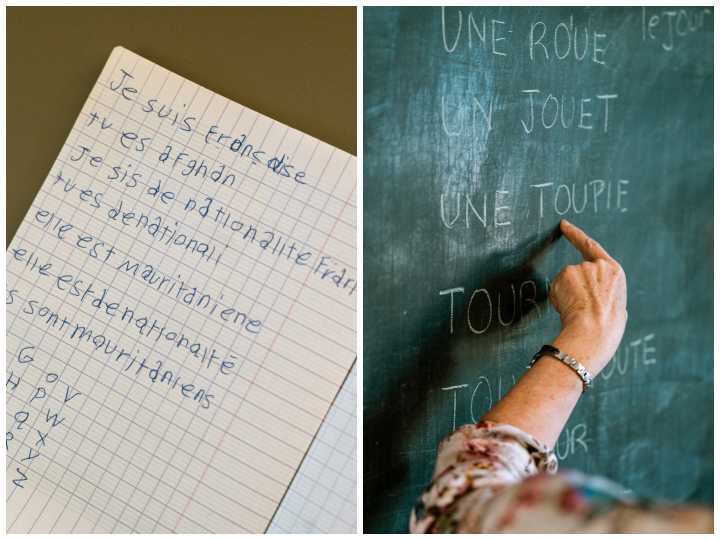 Je suis Française
tu es afghan
Je sis de nationalite Fran
tu es denationali
elle est mauritaniene
elle est denationalité
s sont mauritaniens
G O V
H P W
Q X
R Y
Z
le jour
UNE ROUE
UN JOUET
UNE TOUPIE
TOUR
OUTE
TOU
UR